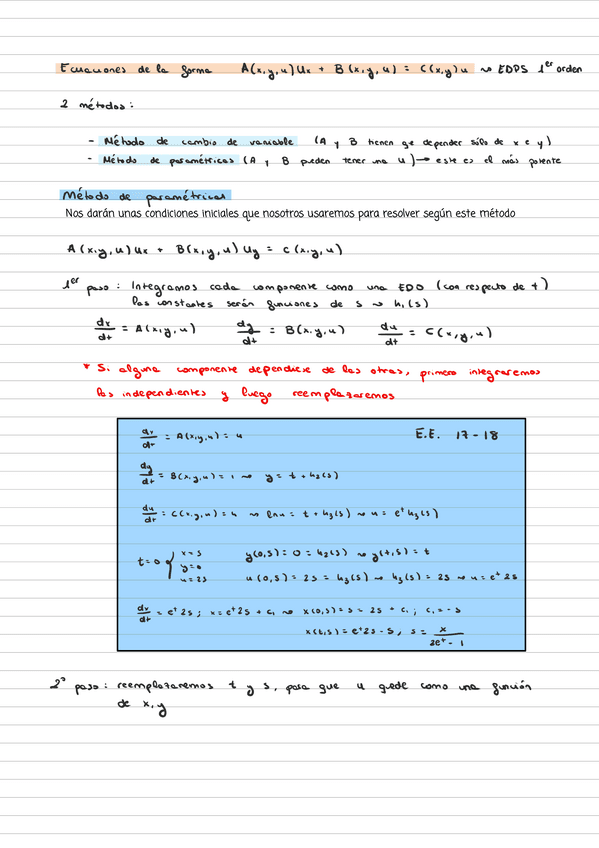 Ecuaciones de la forma A(x,y,u)Ux + B(x,y,u) = C(x,y)u ⇝ EDPS 1er orden
2 métodos:
- Método de cambio de variable (A y B tienen qe depender sólo de x e y)
- Método de paramétricas (A y B pueden tener una u) → este es el más potente
Método de paramétricas
Nos darán unas condiciones iniciales que nosotros usaremos para resolver según este método
A(x,y,u)Ux + B(x,y,u)Uy = C(x,y,u)
1er paso: Integramos cada componente como una EDO (con respecto de t)
las constantes serán funciones de s ⇝ h₁(s)
dx/dt = A(x,y,u) dy/dt = B(x,y,u) du/dt = C(x,y,u)
* Si alguna componente dependiese de las otras, primero integraremos
las independientes y luego reemplazaremos
dx/dt = A(x,y,u) = u E.E. 17-18
dy/dt = B(x,y,u) = 1 ⇝ y = t + h₂(s)
du/dt = C(x,y,u) = u ⇝ lnu = t + h₃(s) ⇝ u = eᵗ h₃(s)
t=0 { x=s y=0 u=2s
y(0,s) = 0 = h₂(s) ⇝ y(t,s) = t
u(0,s) = 2s = h₃(s) ⇝ h₃(s) = 2s ⇝ u = eᵗ 2s
dx/dt = eᵗ 2s ; x = eᵗ 2s + c₁ ⇝ x(0,s) = s = 2s + c₁ ; c₁ = -s
x(t,s) = eᵗ 2s - s , s = x/(2eᵗ - 1)
2º paso: reemplazaremos t y s, para que u qede como una función
de x,y